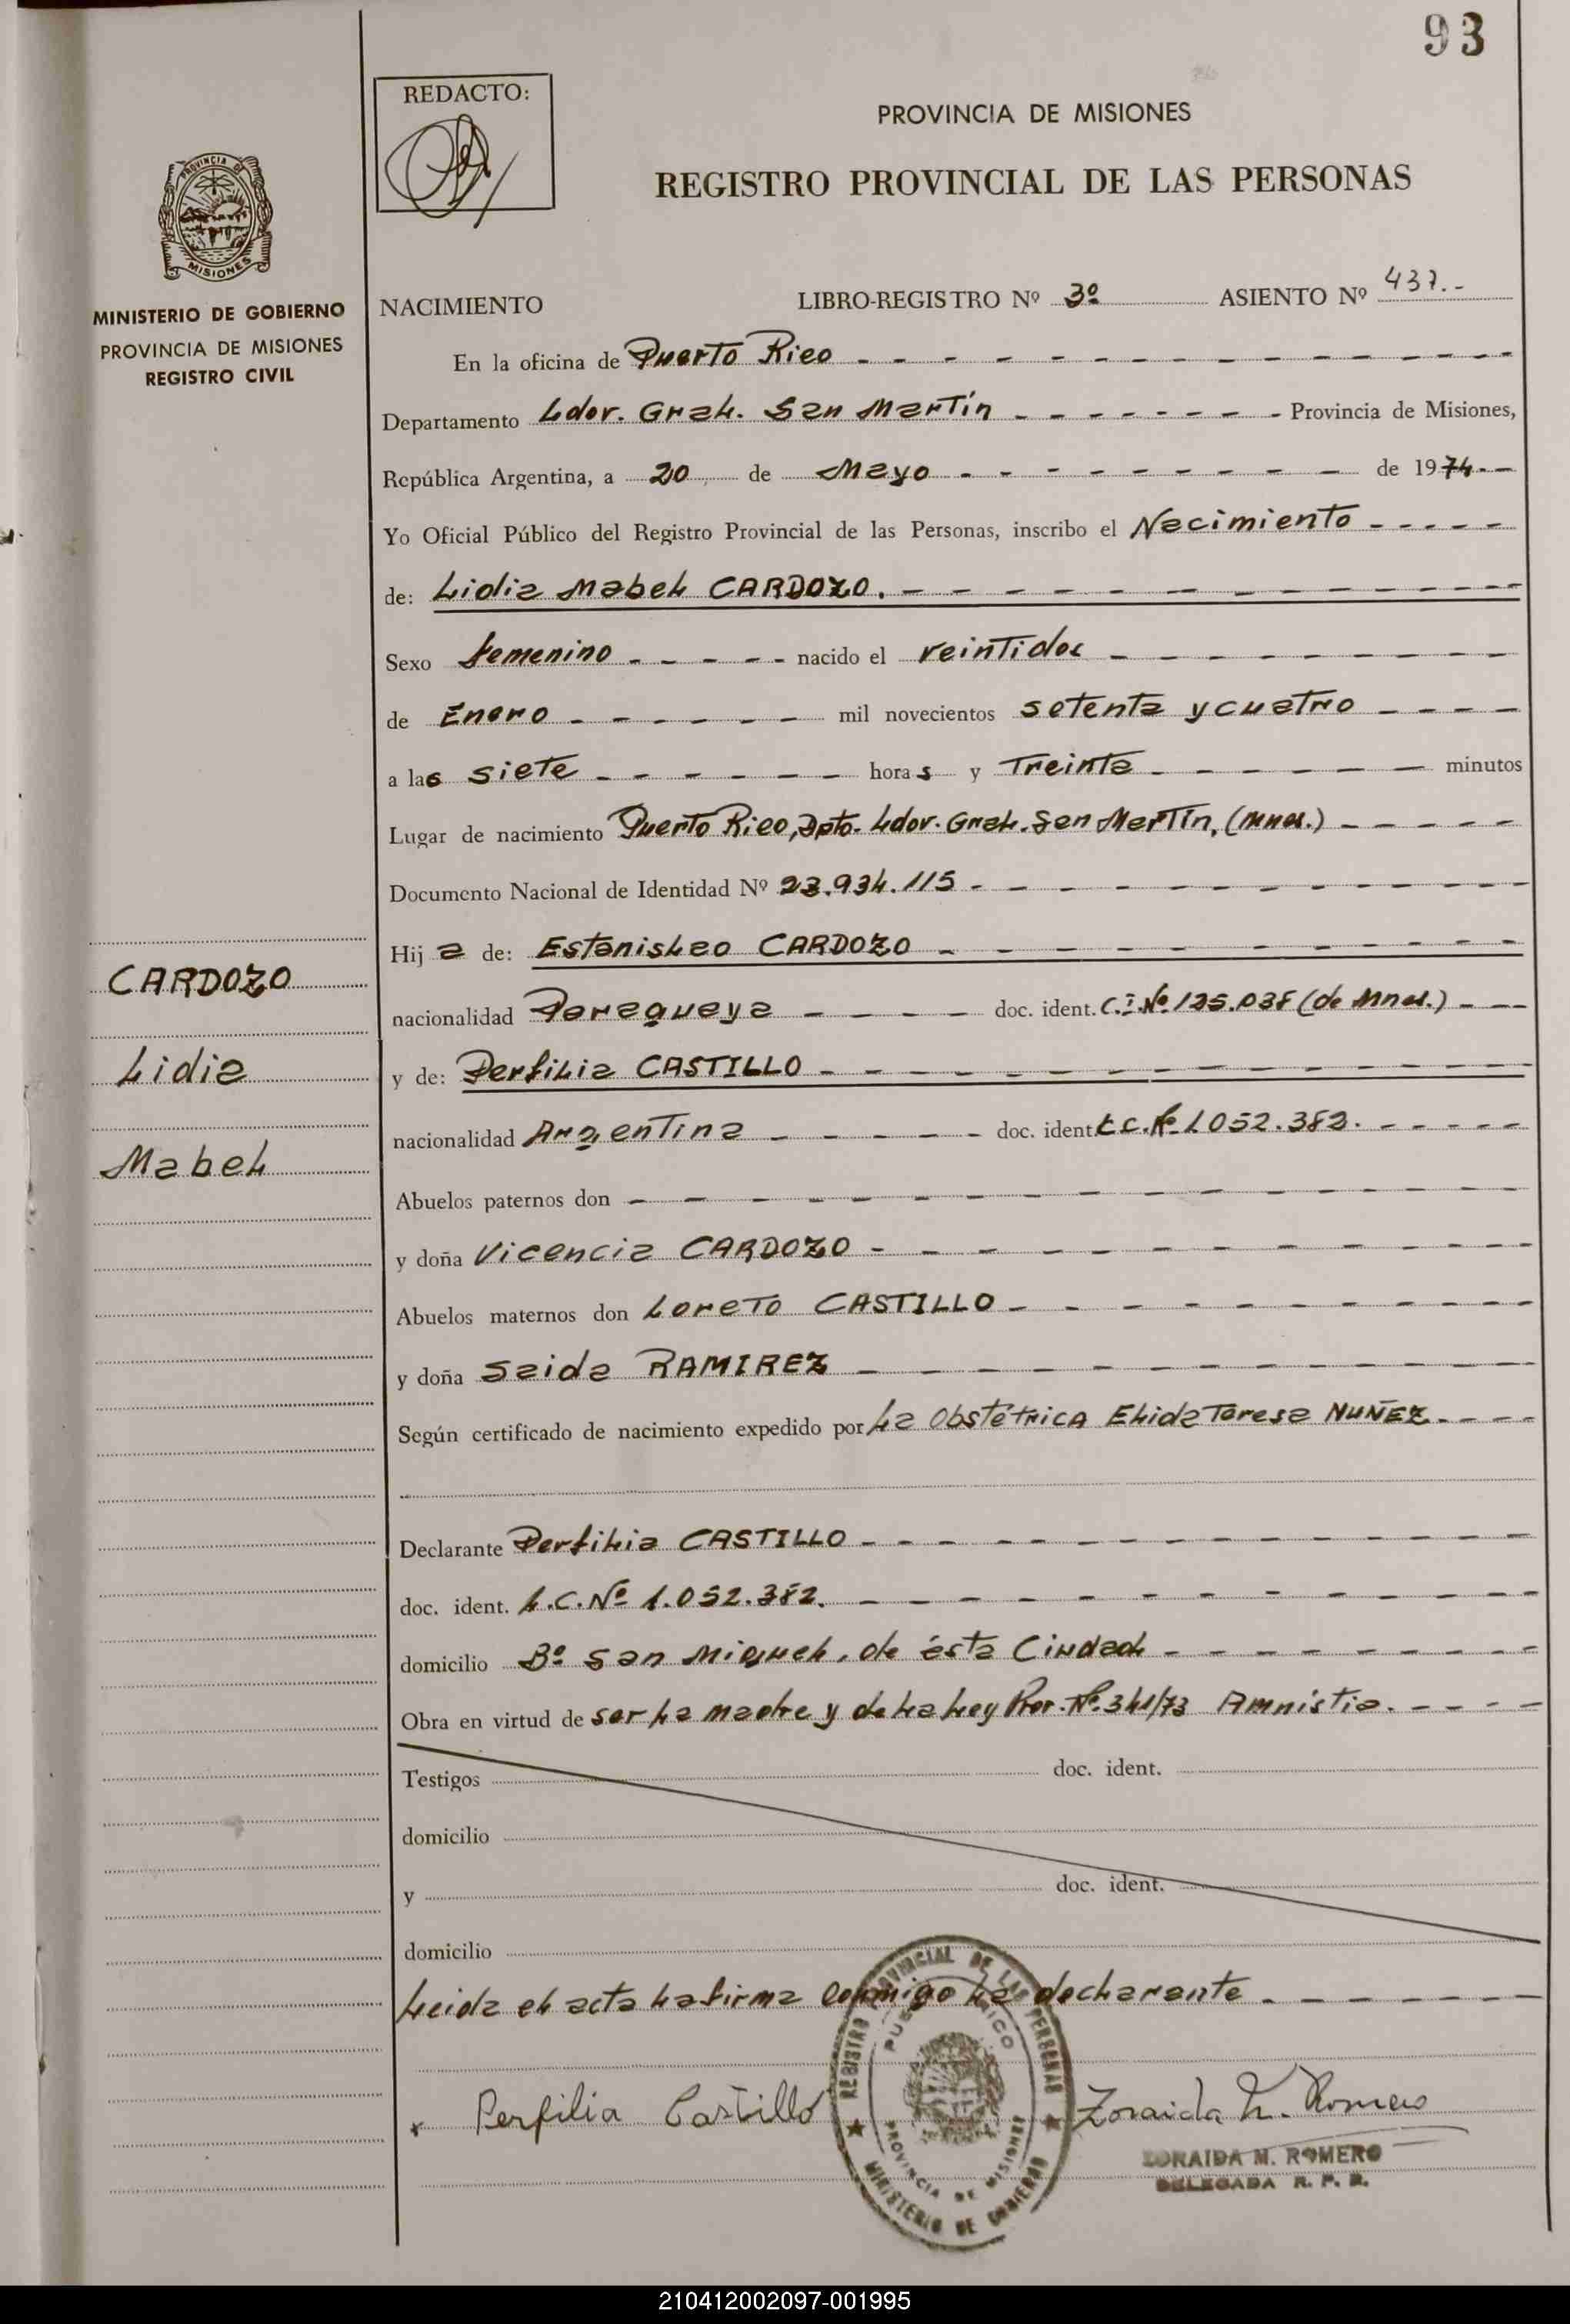 93
REDACTO:
PROVINCIA DE MISIONES
REGISTRO PROVINCIAL DE LAS PERSONAS
PROVINCIA DE
MISIONES
MINISTERIO DE GOBIERNO
PROVINCIA DE MISIONES
REGISTRO CIVIL
NACIMIENTO LIBRO-REGISTRO Nº 3º ASIENTO Nº 437.-
En la oficina de Puerto Rico
Departamento Ldor. Gral. San Martín Provincia de Misiones,
República Argentina, a 20 de Mayo de 1974
Yo Oficial Público del Registro Provincial de las Personas, inscribo el Nacimiento
de: Lidia Mabel CARDOZO.
Sexo femenino nacido el veintidos
de Enero mil novecientos setenta y cuatro
a las siete horas y Treinta minutos
Lugar de nacimiento Puerto Rico, Dpto. Ldor. Gral. San Martín, (Mnes.)
Documento Nacional de Identidad Nº 23.934.115
Hija de: Estanislao CARDOZO
CARDOZO
nacionalidad Paraguaya doc. ident. C.I.Nº 125.038 (de Mnes.)
Lidia
y de: Perfilia CASTILLO
nacionalidad Argentina doc. ident. L.C.Nº 1.052.382.
Mabel
Abuelos paternos don
y doña Vicencia CARDOZO
Abuelos maternos don Loreto CASTILLO
y doña Saida RAMIREZ
Según certificado de nacimiento expedido por La Obstétrica Elida Teresa NUÑEZ
Declarante Perfilia CASTILLO
doc. ident. L.C.Nº 1.052.382.
domicilio Bº San Miguel, de ésta Ciudad
Obra en virtud de ser la madre y de la Ley Pror. Nº. 341/73 Amnistia.
Testigos doc. ident.
domicilio
y doc. ident.
domicilio
Leida el acta la firma conmigo la declarante
REGISTRO PROVINCIAL DE LAS PERSONAS
PUERTO RICO
PROVINCIA DE MISIONES
MINISTERIO DE GOBIERNO
x Perfilia Castillo
Zoraida M. Romero
ZORAIDA M. ROMERO
DELEGADA R. P. P.
210412002097-001995